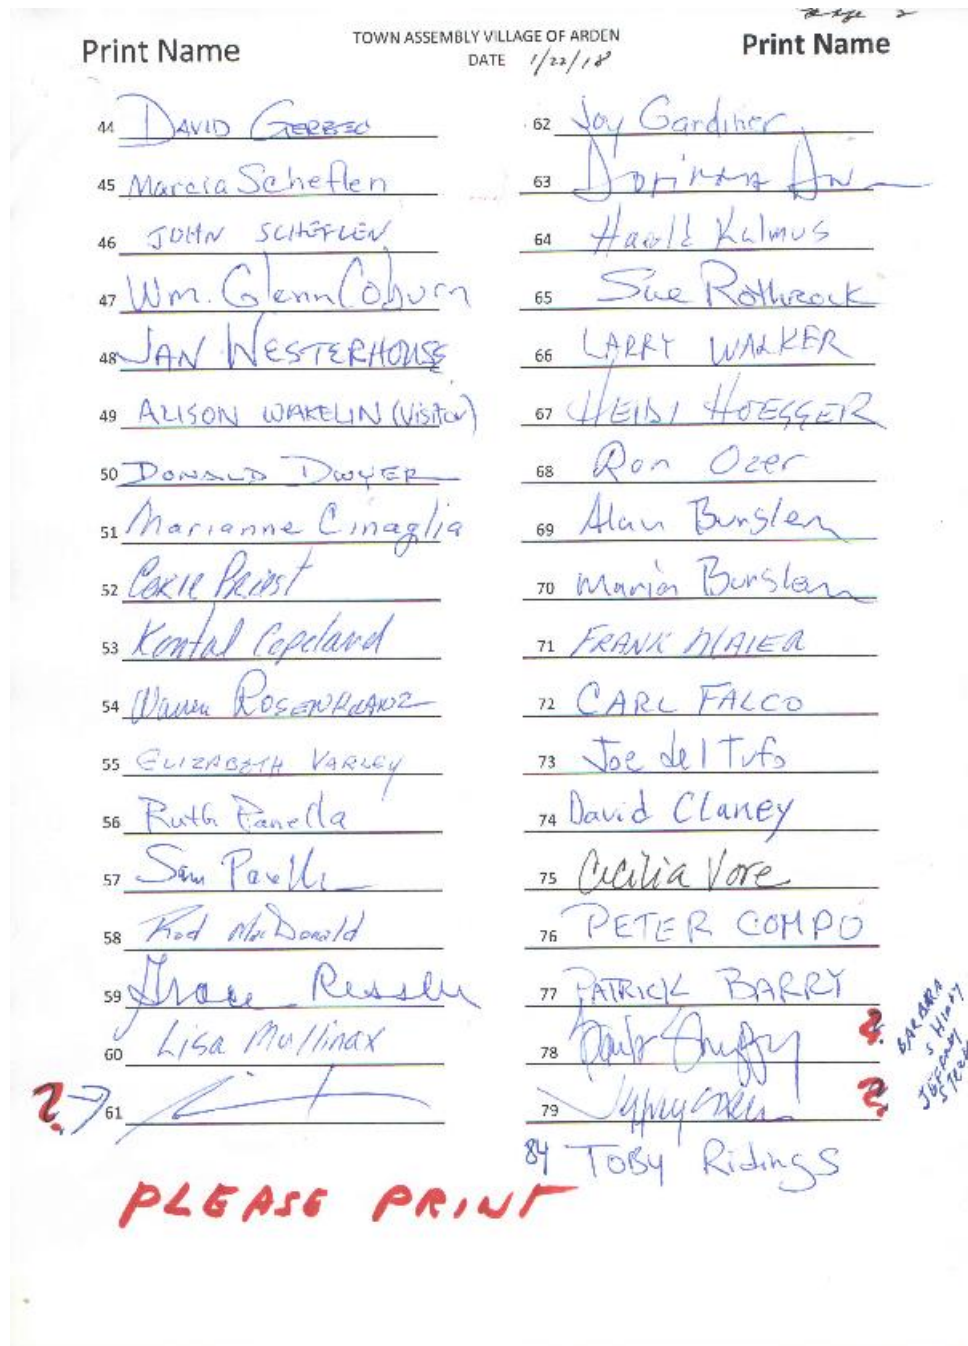 Page 2
TOWN ASSEMBLY VILLAGE OF ARDEN
Print Name
DATE 1/22/18
Print Name
44 DAVID GERBEC
45 Marcia Scheflen
46 JOHN SCHEFLEN
47 Wm. Glenn Coburn
48 JAN WESTERHOUSE
49 ALISON WAKELIN (Visitor)
50 DONALD DWYER
51 Marianne Cinaglia
52 Corie Priest
53 Kental Copeland
54 Warren ROSENKRANZ
55 ELIZABETH VARLEY
56 Ruth Panella
57 Sam Panella
58 Rod MacDonald
59 Grace Ressler
60 Lisa Mullinax
? → 61
PLEASE PRINT
62 Joy Gardiner
63
64 Harold Kalmus
65 Sue Rothrock
66 LARRY WALKER
67 HEIDI HOEGGER
68 Ron Ozer
69 Alan Burslem
70 Marion Burslem
71 FRANK MAIER
72 CARL FALCO
73 Joe del Tufo
74 David Claney
75 Cecilia Vore
76 PETER COMPO
77 PATRICK BARRY
78 ?
79 ?
BARBARA
JEFFREY
84 TOBY Ridings